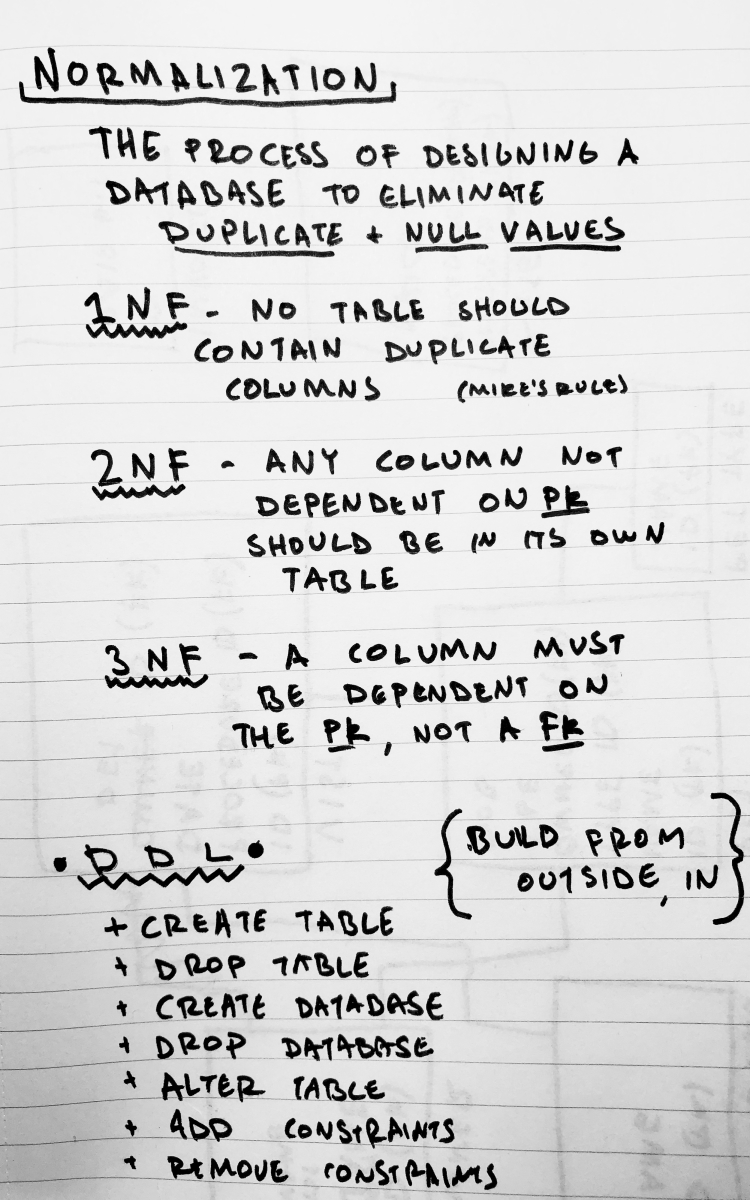 NORMALIZATION
THE PROCESS OF DESIGNING A
DATABASE TO ELIMINATE
DUPLICATE + NULL VALUES
1NF - NO TABLE SHOULD
CONTAIN DUPLICATE
COLUMNS (MIKE'S RULE)
2NF - ANY COLUMN NOT
DEPENDENT ON PK
SHOULD BE IN ITS OWN
TABLE
3NF - A COLUMN MUST
BE DEPENDENT ON
THE PK, NOT A FK
• DDL •
{BUILD FROM
OUTSIDE, IN}
+ CREATE TABLE
+ DROP TABLE
+ CREATE DATABASE
+ DROP DATABASE
+ ALTER TABLE
+ ADD CONSTRAINTS
+ REMOVE CONSTRAINTS